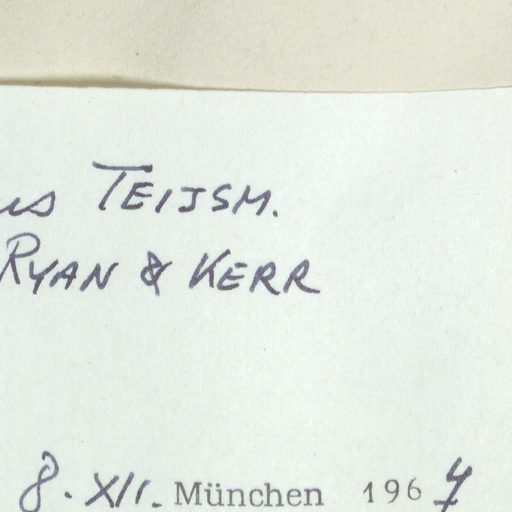 us TEIJSM.
RYAN & KERR
8. XII. München 1967